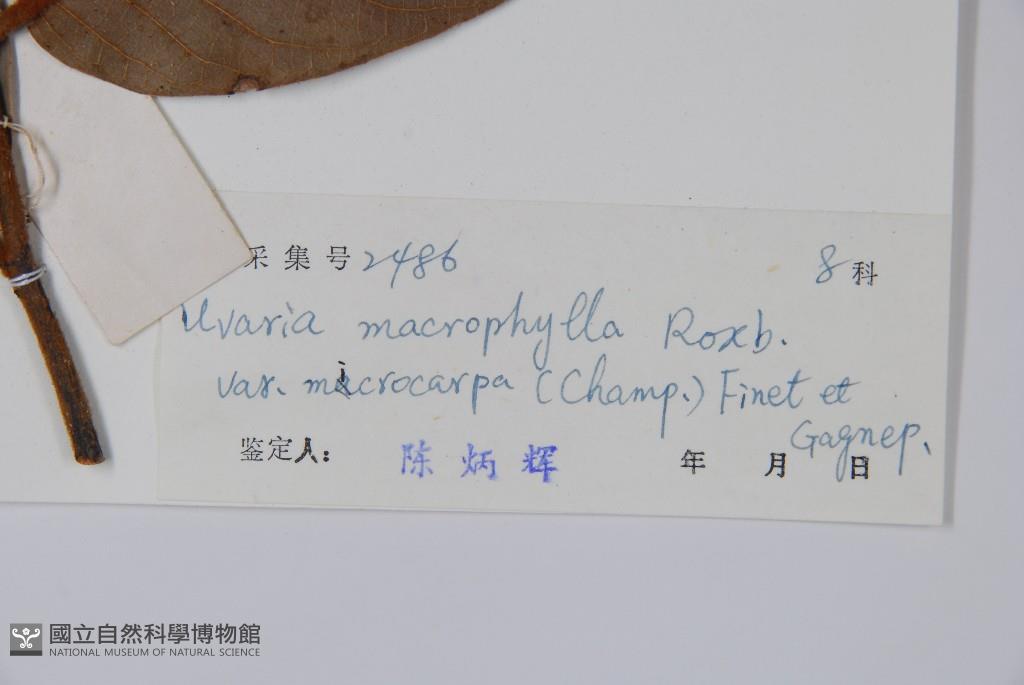 采集号 2486 8 科
Uvaria macrophylla Roxb.
var. microcarpa (Champ.) Finet et
Gagnep.
鉴定人: 陈炳辉 年 月 日
國立自然科學博物館
NATIONAL MUSEUM OF NATURAL SCIENCE